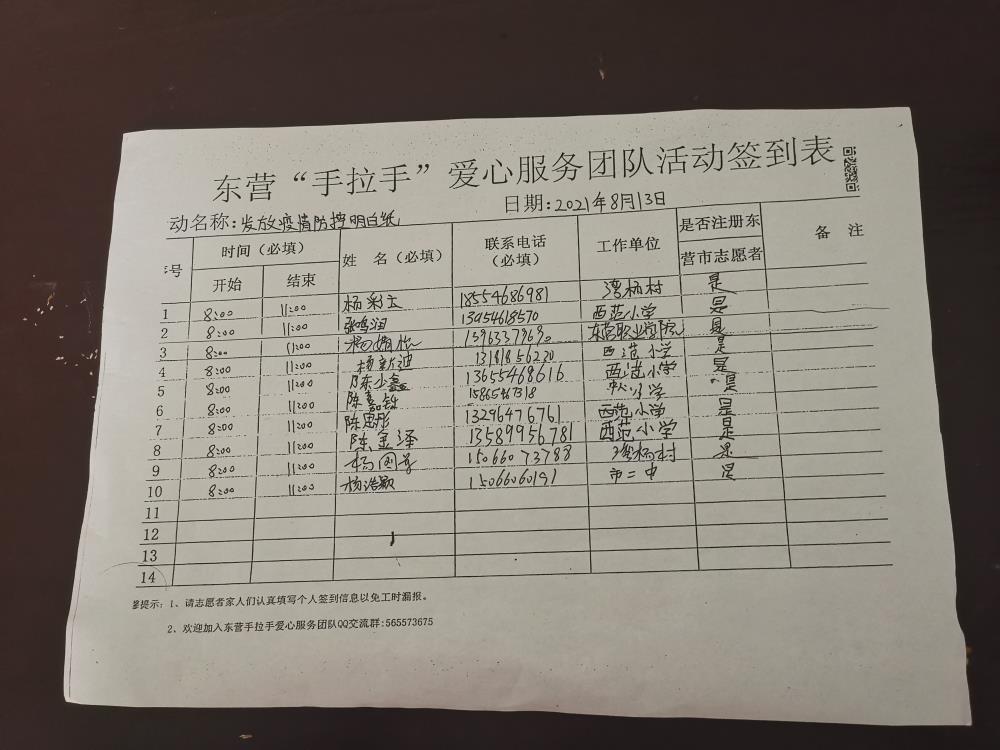 东营“手拉手”爱心服务团队活动签到表
动名称:发放疫情防控明白纸
日期:2021年8月13日
号 时间(必填) 姓 名(必填) 联系电话(必填) 工作单位 是否注册东营市志愿者 备 注
开始 结束
1 8:00 11:00 杨彩玉 18554686981 湾杨村 是
2 8:00 11:00 张鸣润 13954618570 西范小学 是
3 8:00 11:00 杨 东营职业学院 是
4 8:00 11:00 杨新迪 13181856220 西范小学 是
5 8:00 11:00 陈少鑫 13655468616 西范小学 是
6 8:00 11:00 陈嘉铄 小学 是
7 8:00 11:00 陈思彤 13296476761 西范小学 是
8 8:00 11:00 陈金泽 13589956781 西范小学 是
9 8:00 11:00 杨 15066073788 湾杨村 是
10 8:00 11:00 杨浩颖 15066060191 市二中 是
11
12
13
14
提示:1、请志愿者家人们认真填写个人签到信息以免工时漏报。
2、欢迎加入东营手拉手爱心服务团队QQ交流群:565573675